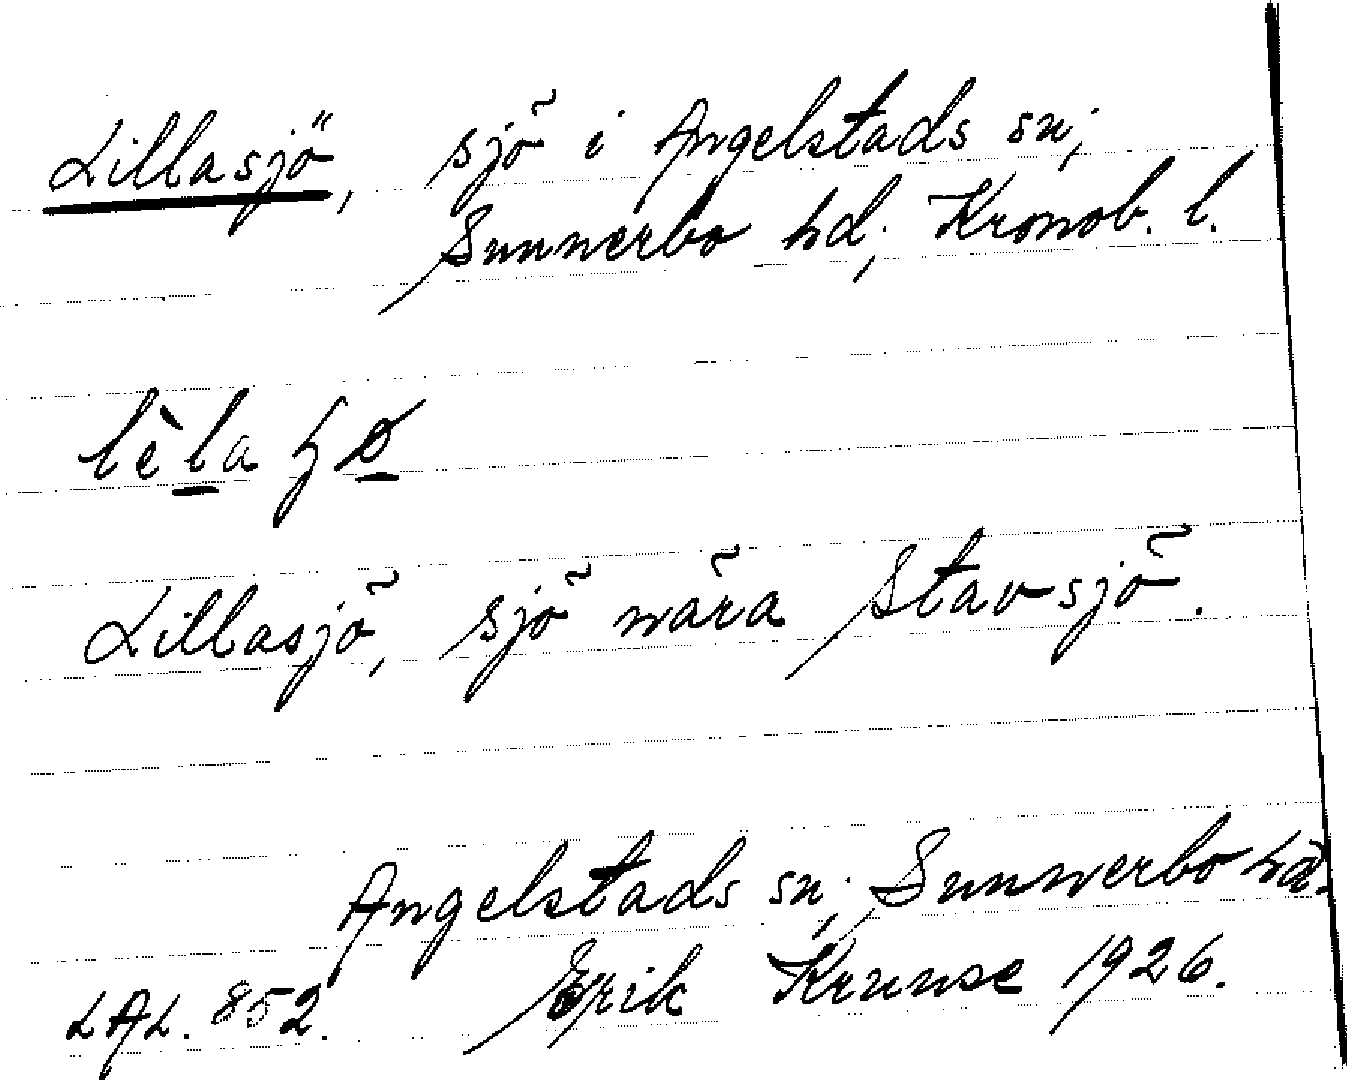 Lillasjö, sjö i Angelstads sn;
Sunnerbo hd; Kronob. l.
lèla ɧø
Lillasjö, sjö nära Stavsjö.
Angelstads sn; Sunnerbo hd.
LAL. 852. Erik Kruuse 1926.